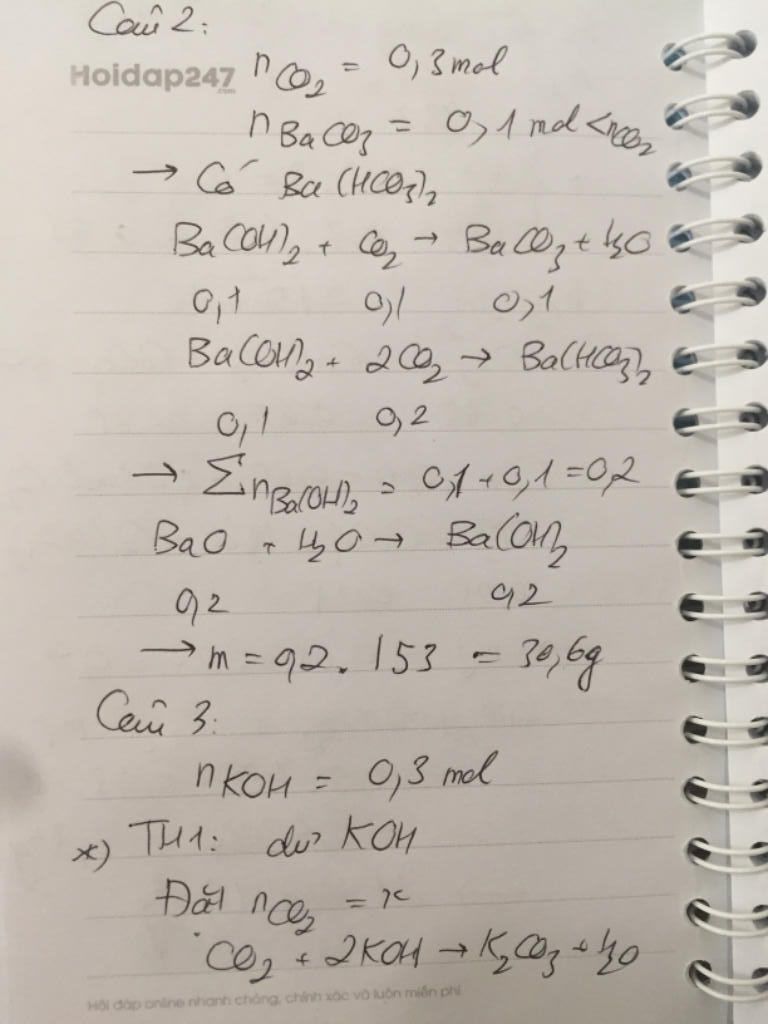 Câu 2:
Hoidap247.com nCO₂ = 0,3 mol
nBaCO₃ = 0,1 mol < nCO₂
→ Có Ba(HCO₃)₂
Ba(OH)₂ + CO₂ → BaCO₃ + H₂O
0,1 0,1 0,1
Ba(OH)₂ + 2CO₂ → Ba(HCO₃)₂
0,1 0,2
→ ΣnBa(OH)₂ = 0,1 + 0,1 = 0,2
BaO + H₂O → Ba(OH)₂
0,2 0,2
→ m = 0,2 . 153 = 30,6g
Câu 3:
nKOH = 0,3 mol
*) TH1: dư KOH
Đặt nCO₂ = x
CO₂ + 2KOH → K₂CO₃ + H₂O
Hỏi đáp online nhanh chóng, chính xác và luôn miễn phí